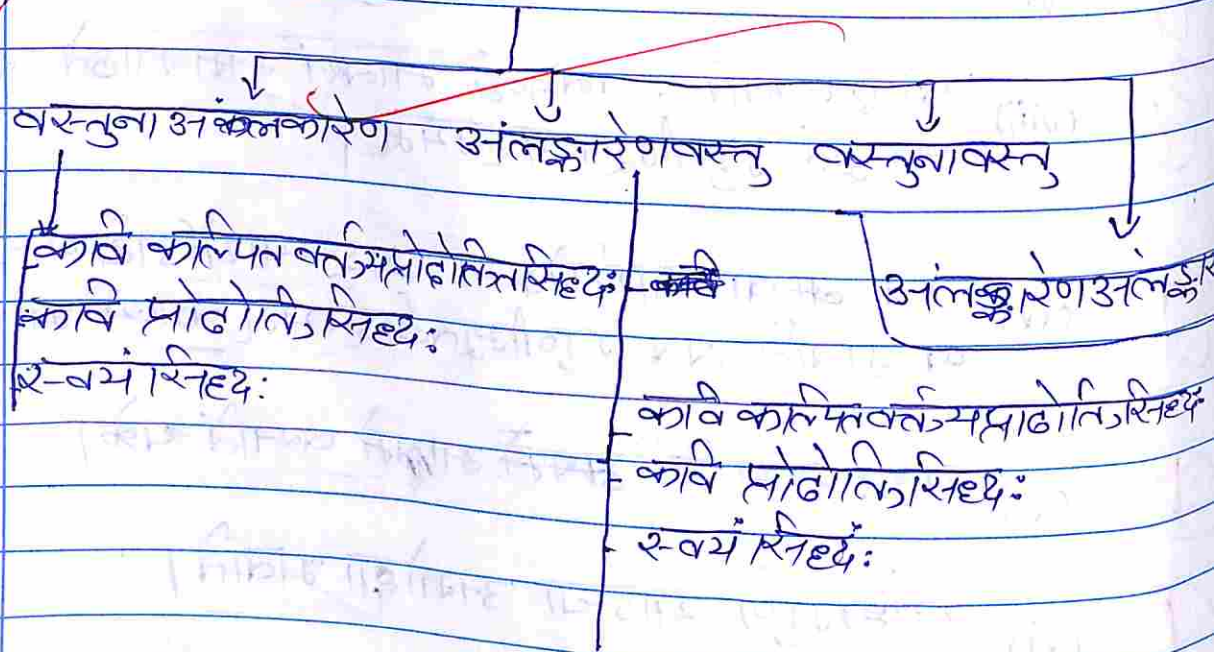 वस्तुना अंलकारेण अंलङ्कारेणवस्तु वस्तुनावस्तु
कवि कल्पित वक्तृप्रौढोक्तिसिध्दः
कवि प्रौढोक्ति सिध्दः
स्वयं सिध्दः
अंलङ्कारेणअंलङ्कार
कवि कल्पितवक्तृप्रौढोक्तिसिध्दः
कवि प्रौढोक्तिसिध्दः
स्वयं सिध्दः